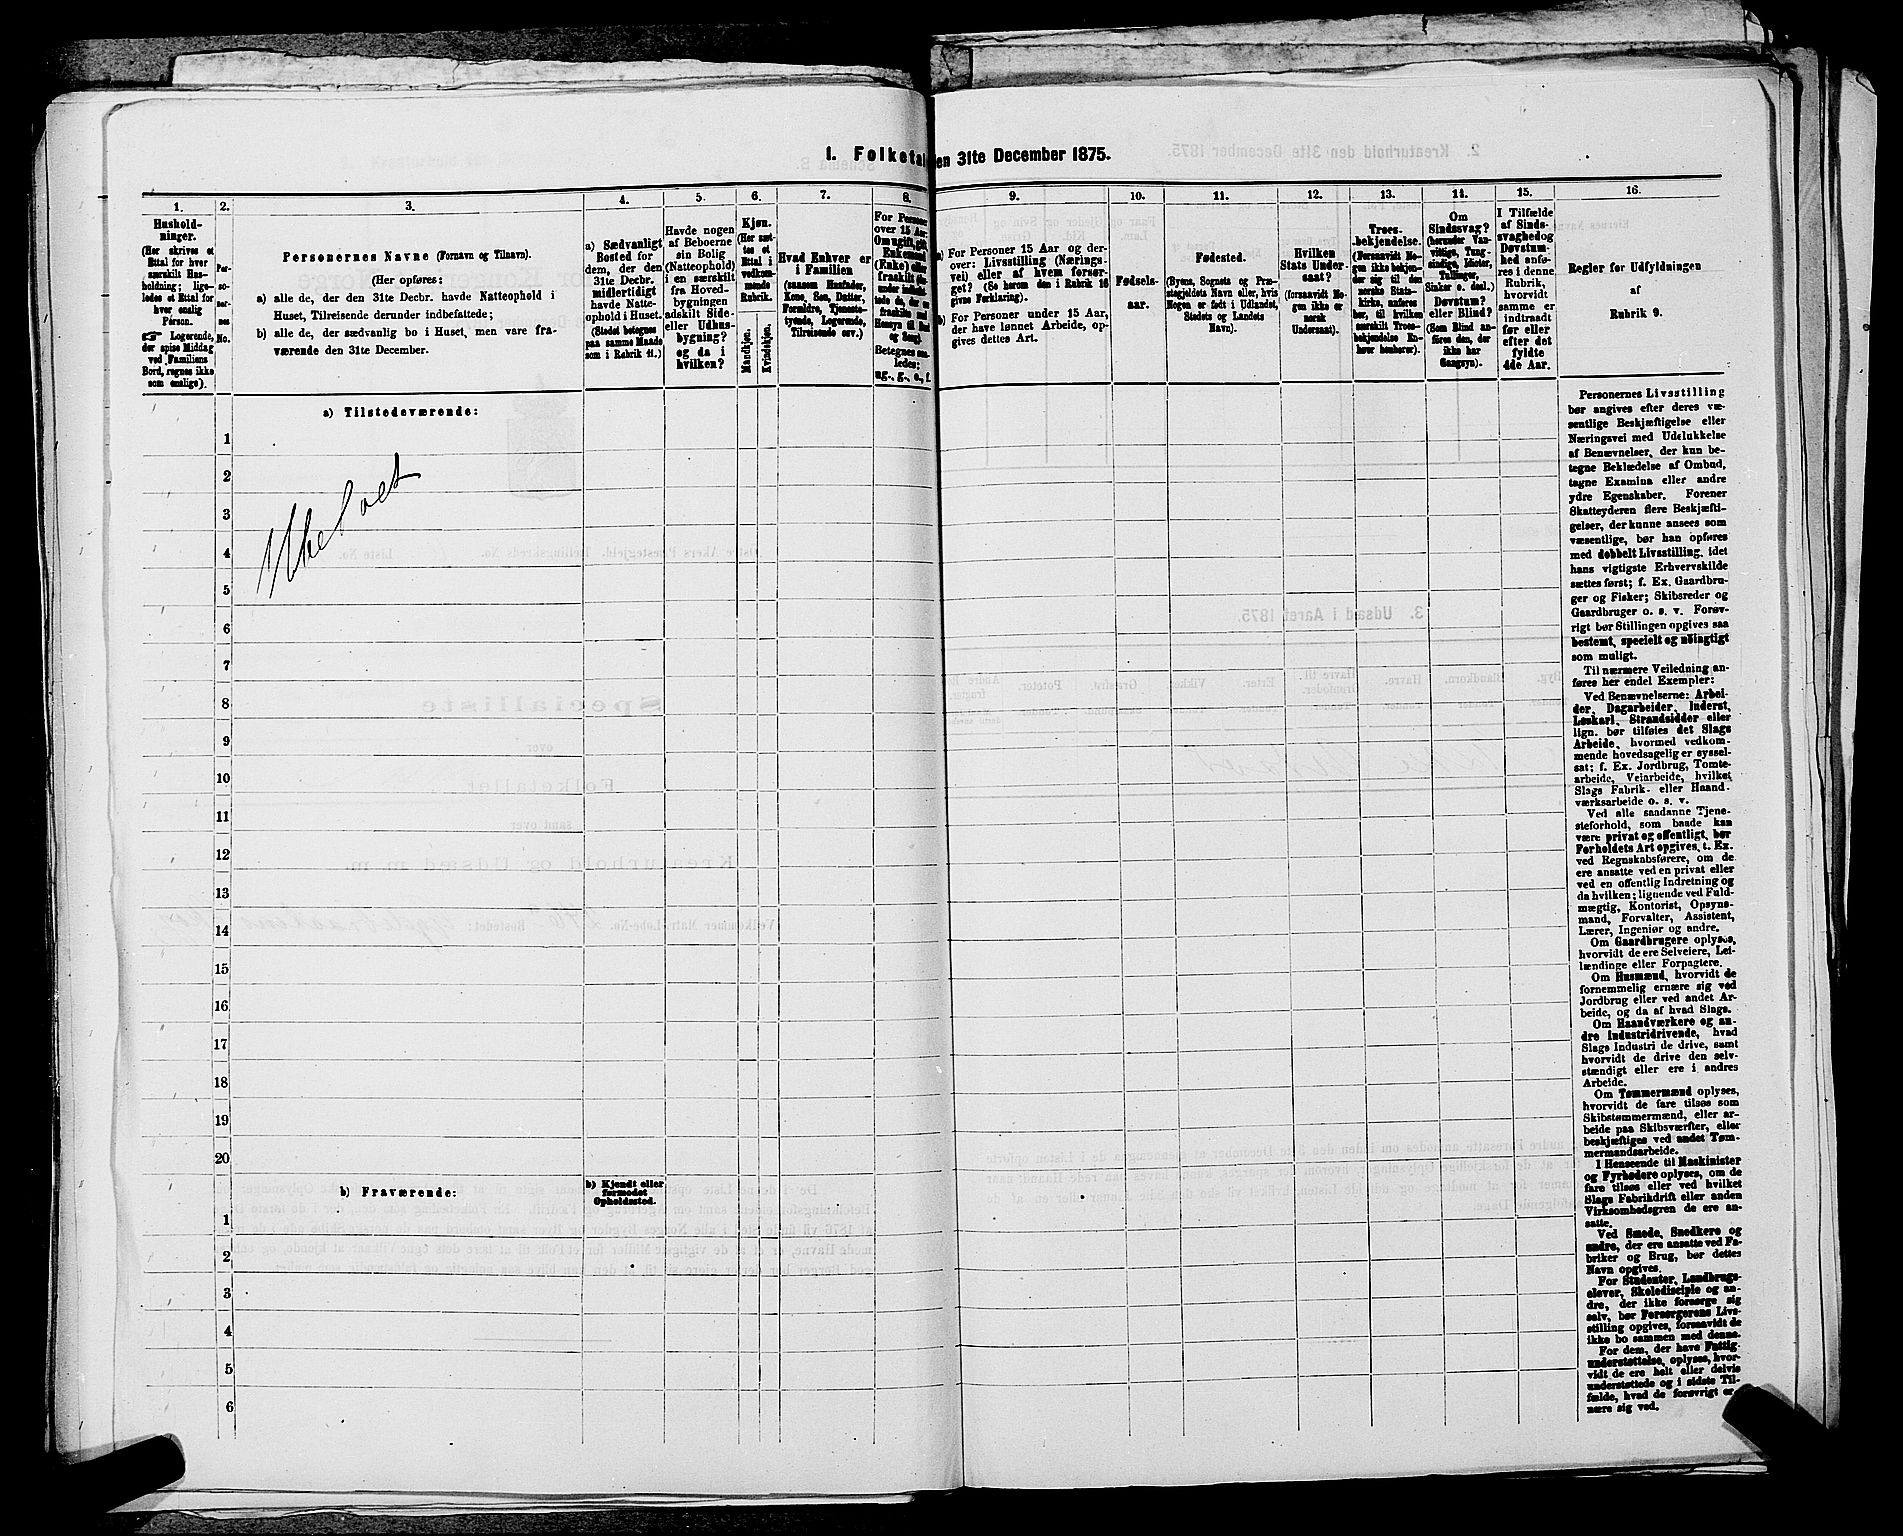 1. Folketal den 31te December 1875.
1.
Hushold-
ninger.
(Her skrives et
Ettal for hver
særskilt Hus-
holdning; lige-
ledes et Ettal for
hver enslig
Person.
☞ Logerende,
der spise Middag
ved Familiens
Bord, regnes ikke
som enslige).
2.
Per-
so-
ner-
nes
No.
3.
Personernes Navne (Fornavn og Tilnavn).
(Her opføres:
a) alle de, der den 31te Decbr. havde Natteophold i
Huset, Tilreisende derunder indbefattede;
b) alle de, der sædvanlig bo i Huset, men vare fra-
værende den 31te December.
4.
a) Sædvanligt
Bosted for
dem, der den
31te Decbr.
midlertidigt
havde Natte-
ophold i Huset.
(Stedet betegnes
paa samme Maade
som i Rubrik 11.)
5.
Havde nogen
af Beboerne
sin Bolig
(Natteophold)
i en særskilt
fra Hoved-
bygningen
adskilt Side-
eller Udhus-
bygning?
og da i
hvilken?
6.
Kjøn.
(Her sæt-
tes et
Ettal i
vedkom-
mende
Rubrik.
Mandkjøn.
Kvindekjøn.
7.
Hvad Enhver er
i Familien
(saasom Husfader,
Kone, Søn, Datter,
Forældre, Tjeneste-
tyende, Logerende,
Tilreisende osv.)
8.
For Personer
over 15 Aar:
Om ugift, gift,
Enkemand
(Enke) eller
fraskilt
Betegnes saa-
ledes:
ug., g., e., f.
9.
a) For Personer 15 Aar og der-
over: Livsstilling (Nærings-
vei) eller af hvem forsør-
get? (Se herom den i Rubrik 16
givne Forklaring).
b) For Personer under 15 Aar,
der have lønnet Arbeide, op-
gives dettes Art.
10.
Fødsels-
aar.
11.
Fødested.
(Byens, Sognets og Præ-
stegjeldets Navn eller, hvis
Nogen er født i Udlandet,
Stedets og Landets
Navn).
12.
Hvilken
Stats Under-
saat?
(forsaavidt No-
gen ikke er
norsk
Undersaat).
13.
Troes-
bekjendelse.
(Forsaavidt No-
gen ikke bekjen-
der sig til den
norske Stats-
kirke, anføres
her, til hvilken
særskilt Troes-
bekjendelse En-
hver henhører).
14.
Om
Sindssvag?
(herunder Van-
vittige, Tung-
sindige, Idioter,
Tullinger,
Sinker o. desl.)
Døvstum?
eller Blind?
(Som Blind an-
føres den, der
ikke har
Gangsyn).
15.
I Tilfælde
af Sinds-
svaghed og
Døvstum-
hed anfø-
res i denne
Rubrik,
hvorvidt
samme er
indtraadt
før eller
efter det
fyldte
4de Aar.
16.
Regler for Udfyldningen
af
Rubrik 9.
a) Tilstedeværende:
1
2
3
4
5
6
7
8
9
10
11
12
13
14
15
16
17
18
19
20
b) Fraværende:
b) Kjendt eller
formodet
Opholdssted.
1
2
3
4
5
6
Personernes Livsstilling
bør angives efter deres væ-
sentlige Beskjæftigelse eller
Næringsvei med Udelukkelse
af Benævnelser, der kun be-
tegne Beklædelse af Ombud,
tagne Examina eller andre
ydre Egenskaber. Forener
Skatteyderen flere Beskjæfti-
gelser, der kunne ansees som
væsentlige, bør han opføres
med dobbelt Livsstilling, idet
hans vigtigste Erhvervskilde
sættes først; f. Ex. Gaardbru-
ger og Fisker; Skibsreder og
Gaardbruger o. s. v. Forøv-
rigt bør Stillingen opgives saa
bestemt, specielt og nöiagtigt
som muligt.
Til nærmere Veiledning an-
føres her endel Exempler:
Ved Benævnelserne: Arbei-
der, Dagarbeider, Inderst,
Løskarl, Strandsidder eller
lign. bør tilføies det Slags
Arbeide, hvormed vedkom-
mende hovedsagelig er syssel-
sat; f. Ex. Jordbrug, Tomte-
arbeide, Veiarbeide, hvilket
Slags Fabrik- eller Haand-
værksarbeide o. s. v.
Ved alle saadanne Tjene-
steforhold, som baade kan
være privat og offentligt, bør
Forholdets Art opgives, t. Ex.
ved Regnskabsførere, om de
ere ansatte ved en privat eller
ved en offentlig Indretning og
da hvilken; lignende ved Fuld-
mægtig, Kontorist, Opsyns-
mand, Forvalter, Assistent,
Lærer, Ingeniør og andre.
Om Gaardbrugere oplyses,
hvorvidt de ere Selveiere, Lei-
lændinge eller Forpagtere.
Om Husmænd, hvorvidt de
fornemmelig ernære sig ved
Jordbrug eller ved andet Ar-
beide, og da af hvad Slags.
Om Haandværkere og an-
dre Industridrivende, hvad
Slags Industri de drive, samt
hvorvidt de drive den selv-
stændigt eller ere i andres
Arbeide.
Om Tømmermænd oplyses,
hvorvidt de fare tilsøs som
Skibstømmermænd, eller ar-
beide paa Skibsværfter, eller
beskjæftiges ved andet Tøm-
mermandsarbeide.
I Henseende til Maskinister
og Fyrbødere oplyses, om de
fare tilsøs eller ved hvilket
Slags Fabrikdrift eller anden
Virksomhedsgren de ere an-
satte.
Ved Smede, Snedkere og
andre, der ere ansatte ved Fa-
briker og Brug, bør dettes
Navn opgives.
For Studenter, Landbrugs-
elever, Skoledisciple og an-
dre, der ikke forsørge sig
selv, bør Forsørgerens Livs-
stilling opgives, forsaavidt de
ikke bo sammen med denne.
For dem, der have Fattig-
understøttelse, oplyses, hvor-
vidt de ere helt eller delvis
understøttede og i sidste Til-
fælde, hvad de forøvrigt er-
nære sig ved.